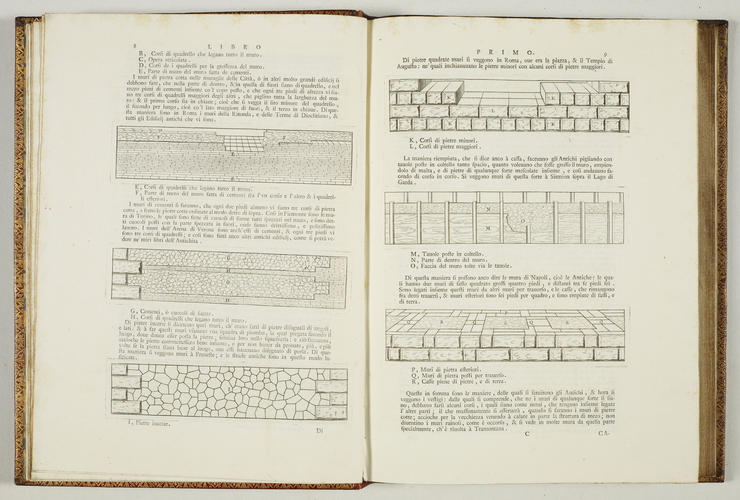 8 LIBRO
B, Corsi di quadrello che legano tutto il muro.
C, Opera reticolata.
D, Corsi de i quadrelli per la grossezza del muro.
E, Parte di mezo del muro fatta de cementi.
I muri di pietra cotta nelle muraglie delle Città, ò in altri molto grandi edificij si
debbono fare, che nella parte di dentro, & in quella di fuori siano di quadrello, e nel
mezo pieni di cementi insieme co'l copo pesto, e che ogni tre piedi di altezza vi sia-
no tre corsi di quadrelli maggiori degli altri, che piglino tutta la larghezza del mu-
ro: & il primo corso sia in chiave; cioè che si vegga il lato minore del quadrello,
il secondo per lungo, cioè co'l lato maggiore di fuori, & il terzo in chiave. Di que-
sta maniera sono in Roma i muri della Ritonda, e delle Terme di Diocletiano, &
tutti gli Edificij antichi che vi sono.
E, Corsi di quadrelli che legano tutto il muro.
F, Parte di mezo del muro fatta de cementi fra l'vn corso e l'altro & i quadrel-
li esteriori.
I muri di cementi si faranno, che ogni due piedi almeno vi siano tre corsi di pietra
cotta, e siano le pietre cotte ordinate al modo detto di sopra. Così in Piemonte sono le mu-
ra di Turino, le quali sono fatte di cuocoli di fiume tutti spezzati nel mezo, e sono det-
ti cuocoli posti con la parte spezzata in fuori, onde fanno drittissimo, e politissimo
lauoro. I muri dell'Arena di Verona sono anch'essi di cementi, & ogni tre piedi vi
sono tre corsi di quadrelli; e così sono fatti anco altri antichi edificij, come si potrà ve-
dere ne' miei libri dell'Antichità.
G, Cementi, ò cuocoli di fiume.
H, Corsi di quadrelli che legano tutto il muro.
Di pietre incerte si diceuano quei muri, ch'erano fatti di pietre disuguali di angoli,
e lati: & à far questi muri vsauano vna squadra di piombo, la qual piegata secondo il
luogo, doue doueua esser posta la pietra, seruiua loro nello squadrarla: e ciò faceuano,
accioche le pietre commettessero bene insieme, e per non hauer da prouare, più, e più
volte se la pietra staua bene al luogo, oue essi haueuano disegnato di porla. Di que-
sta maniera si veggono muri à Preneste; e le strade antiche sono in questo modo la-
stricate.
I, Pietre incerte.
Di
PRIMO. 9
Di pietre quadrate muri si veggono in Roma, oue era la piazza, & il Tempio di
Augusto: ne' quali inchiauauano le pietre minori con alcuni corsi di pietre maggiori.
K, Corsi di pietre minori.
L, Corsi di pietre maggiori.
La maniera riempiuta, che si dice anco à cassa, faceuano gli Antichi pigliando con
tauole poste in coltello tanto spacio, quanto voleuano che fosse grosso il muro, empiendolo
di malta, e di pietre di qualunque sorte mescolate insieme, e così andauano fa-
cendo di corso in corso. Si veggono muri di questa sorte à Sirmion sopra il Lago di
Garda.
M, Tauole poste in coltello.
N, Parte di dentro del muro.
O, Faccia del muro tolte via le tauole.
Di questa maniera si possono anco dire le mura di Napoli, cioè le Antiche: le qua-
li hanno due muri di sasso quadrato grossi quattro piedi, e distanti tra se piedi sei.
Sono legati insieme questi muri da altri muri per trauerso, e le casse, che rimangono
fra detti trauersi, & muri esteriori sono sei piedi per quadro, e sono empiute di sassi, e
di terra.
P, Muri di pietra esteriori.
Q, Muri di pietra posti per trauerso.
R, Casse piene di pietre, e di terra.
Queste in somma sono le maniere, delle quali si seruirono gli Antichi, & hora si
veggono i vestigi: dalle quali si comprende, che ne i muri di qualunque sorte si sia-
no, debbono farsi alcuni corsi, i quali siano come nerui, che tengano insieme legate
l'altre parti; il che massimamente si osseruerà, quando si faranno i muri di pietre
cotte; accioche per la vecchiezza venendo à calare in parte la struttura di mezo; non
diuentino i muri rouinosi, come è occorso, & si vede in molte mura da quella parte
specialmente, ch'è riuolta à Tramontana.
C CA-